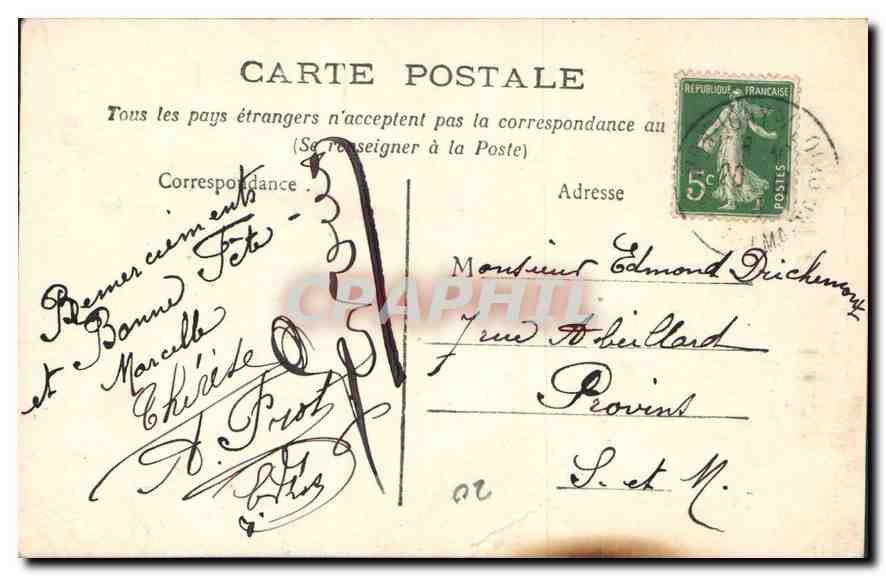 CARTE POSTALE
Tous les pays étrangers n'acceptent pas la correspondance au
(Se renseigner à la Poste)
Correspondance.
Adresse
REPUBLIQUE FRANÇAISE
5c
POSTES
Remerciements
et Bonne Fête -
Marcelle
Thérèse
A. Prot
Monsieur Edmond Drichemont
7 rue Abeillard
Provins
S. et M.
CPAPHIL
02